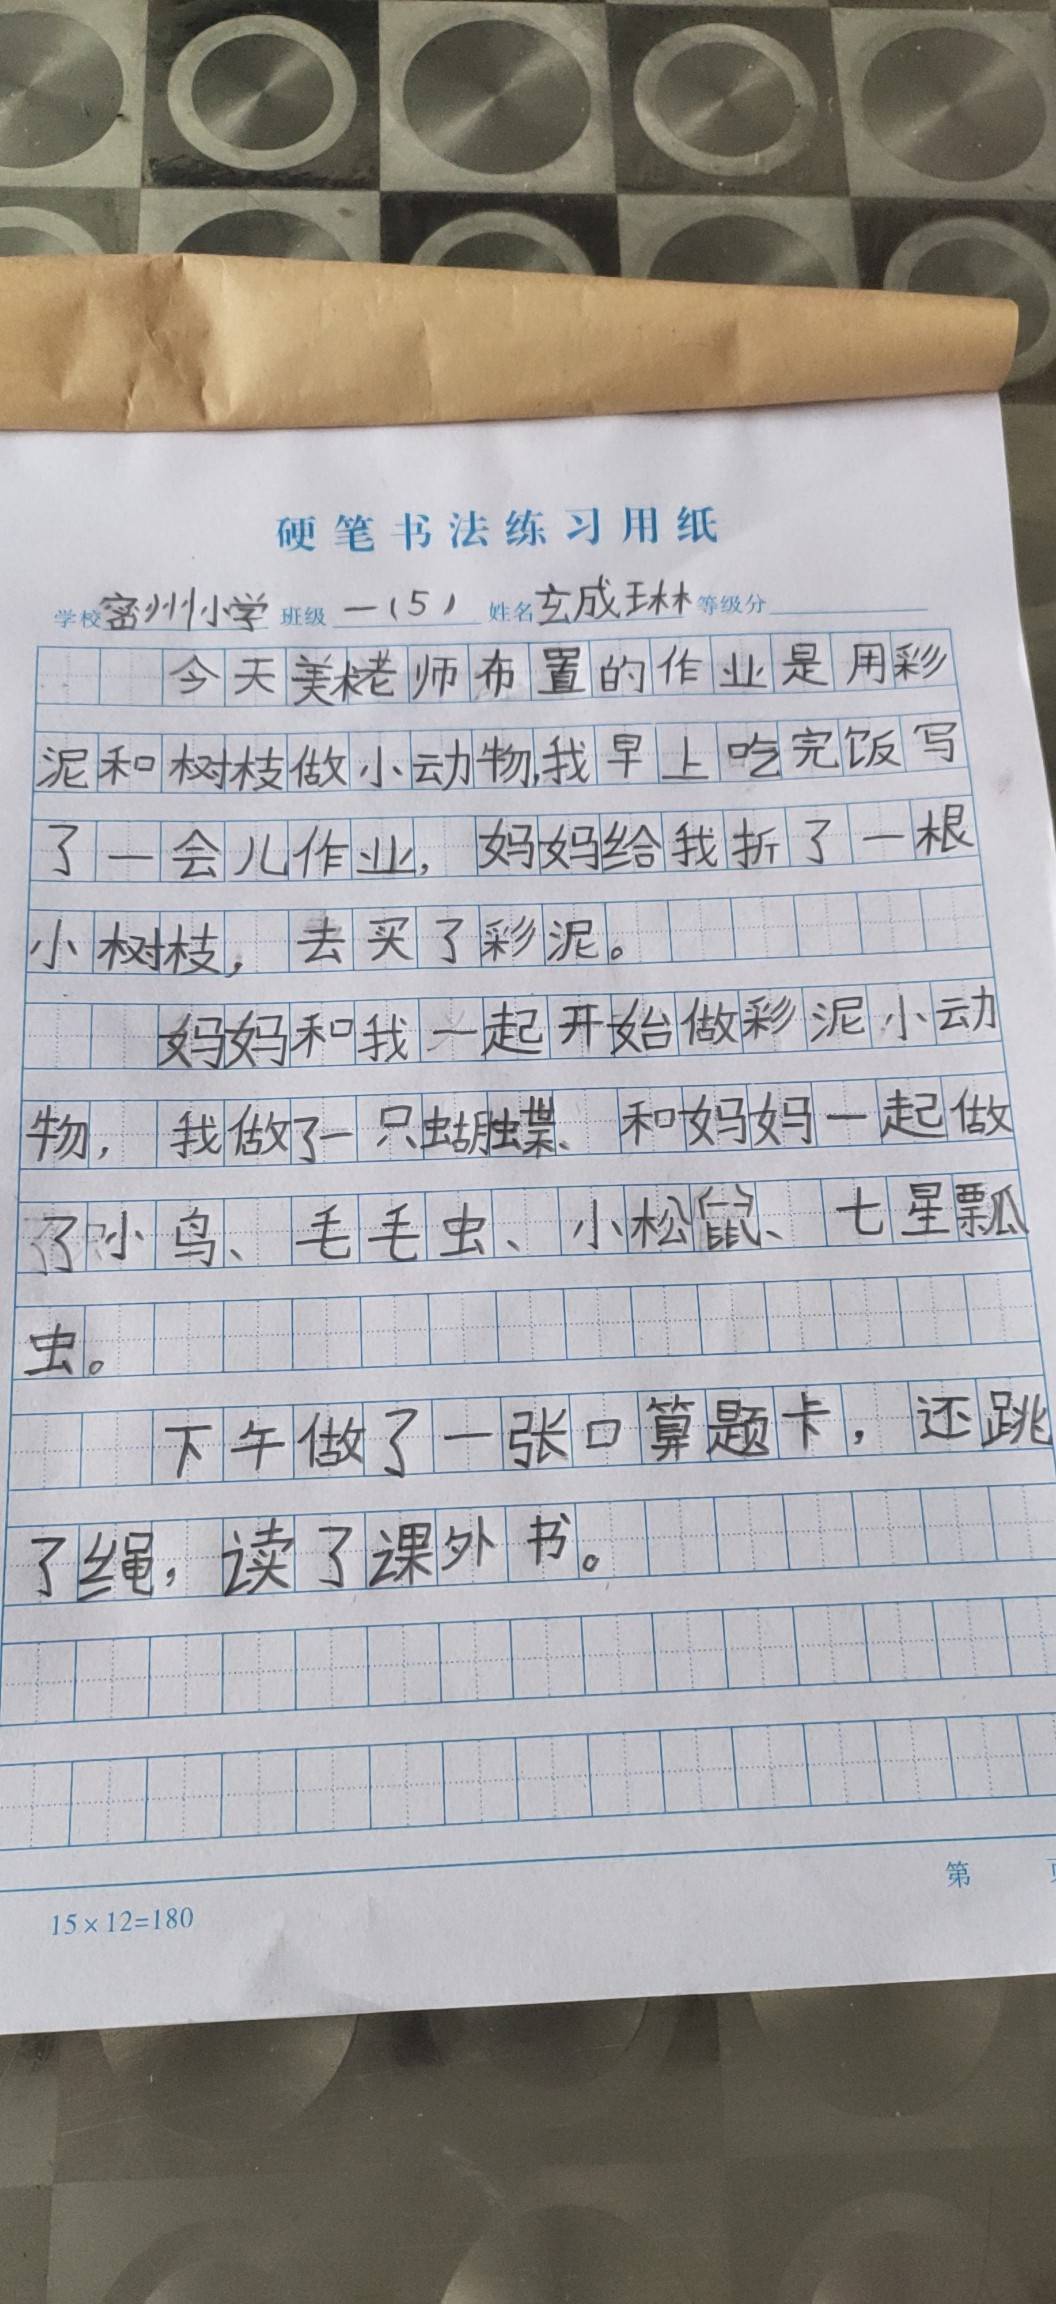 硬笔书法练习用纸
学校密州小学 班级 一(5) 姓名玄成琳 等级分
今天美术老师布置的作业是用彩
泥和树枝做小动物,我早上吃完饭写
了一会儿作业,妈妈给我折了一根
小树枝,去买了彩泥。
妈妈和我一起开始做彩泥小动
物,我做了一只蝴蝶、和妈妈一起做
了小鸟、毛毛虫、小松鼠、七星瓢
虫。
下午做了一张口算题卡,还跳
了绳,读了课外书。
第
15×12=180